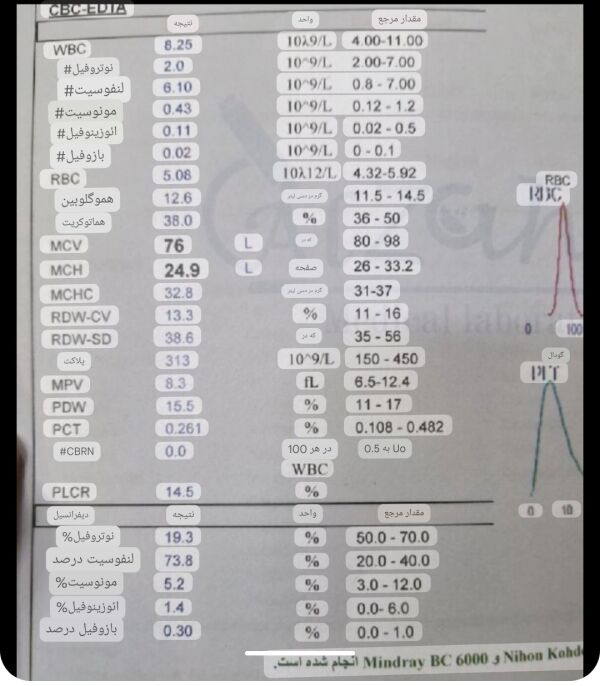 CBC-EDTA
نتیجه واحد مقدار مرجع
WBC 8.25 10λ9/L 4.00-11.00
نوتروفیل# 2.0 10^9/L 2.00-7.00
لنفوسیت# 6.10 10^9/L 0.8 - 7.00
مونوسیت# 0.43 10^9/L 0.12 - 1.2
ائوزینوفیل# 0.11 10^9/L 0.02 - 0.5
بازوفیل# 0.02 10^9/L 0 - 0.1
RBC 5.08 10λ12/L 4.32-5.92
هموگلوبین 12.6 گرم در دسی لیتر 11.5 - 14.5
هماتوکریت 38.0 % 36 - 50
MCV 76 L که در 80 - 98
MCH 24.9 L صفحه 26 - 33.2
MCHC 32.8 گرم در دسی لیتر 31-37
RDW-CV 13.3 % 11 - 16
RDW-SD 38.6 که در 35 - 56
پلاکت 313 10^9/L 150 - 450
MPV 8.3 fL 6.5-12.4
PDW 15.5 % 11 - 17
PCT 0.261 % 0.108 - 0.482
#CBRN 0.0 در هر 100 Uo به 0.5
WBC
PLCR 14.5 %
RBC
RBC
0 100
گودال
PLT
0 10
دیفرانسیل نتیجه واحد مقدار مرجع
نوتروفیل% 19.3 % 50.0 - 70.0
لنفوسیت درصد 73.8 % 20.0 - 40.0
مونوسیت% 5.2 % 3.0 - 12.0
ائوزینوفیل% 1.4 % 0.0- 6.0
بازوفیل درصد 0.30 % 0.0 - 1.0
Nihon Kohd و Mindray BC 6000 انجام شده است.